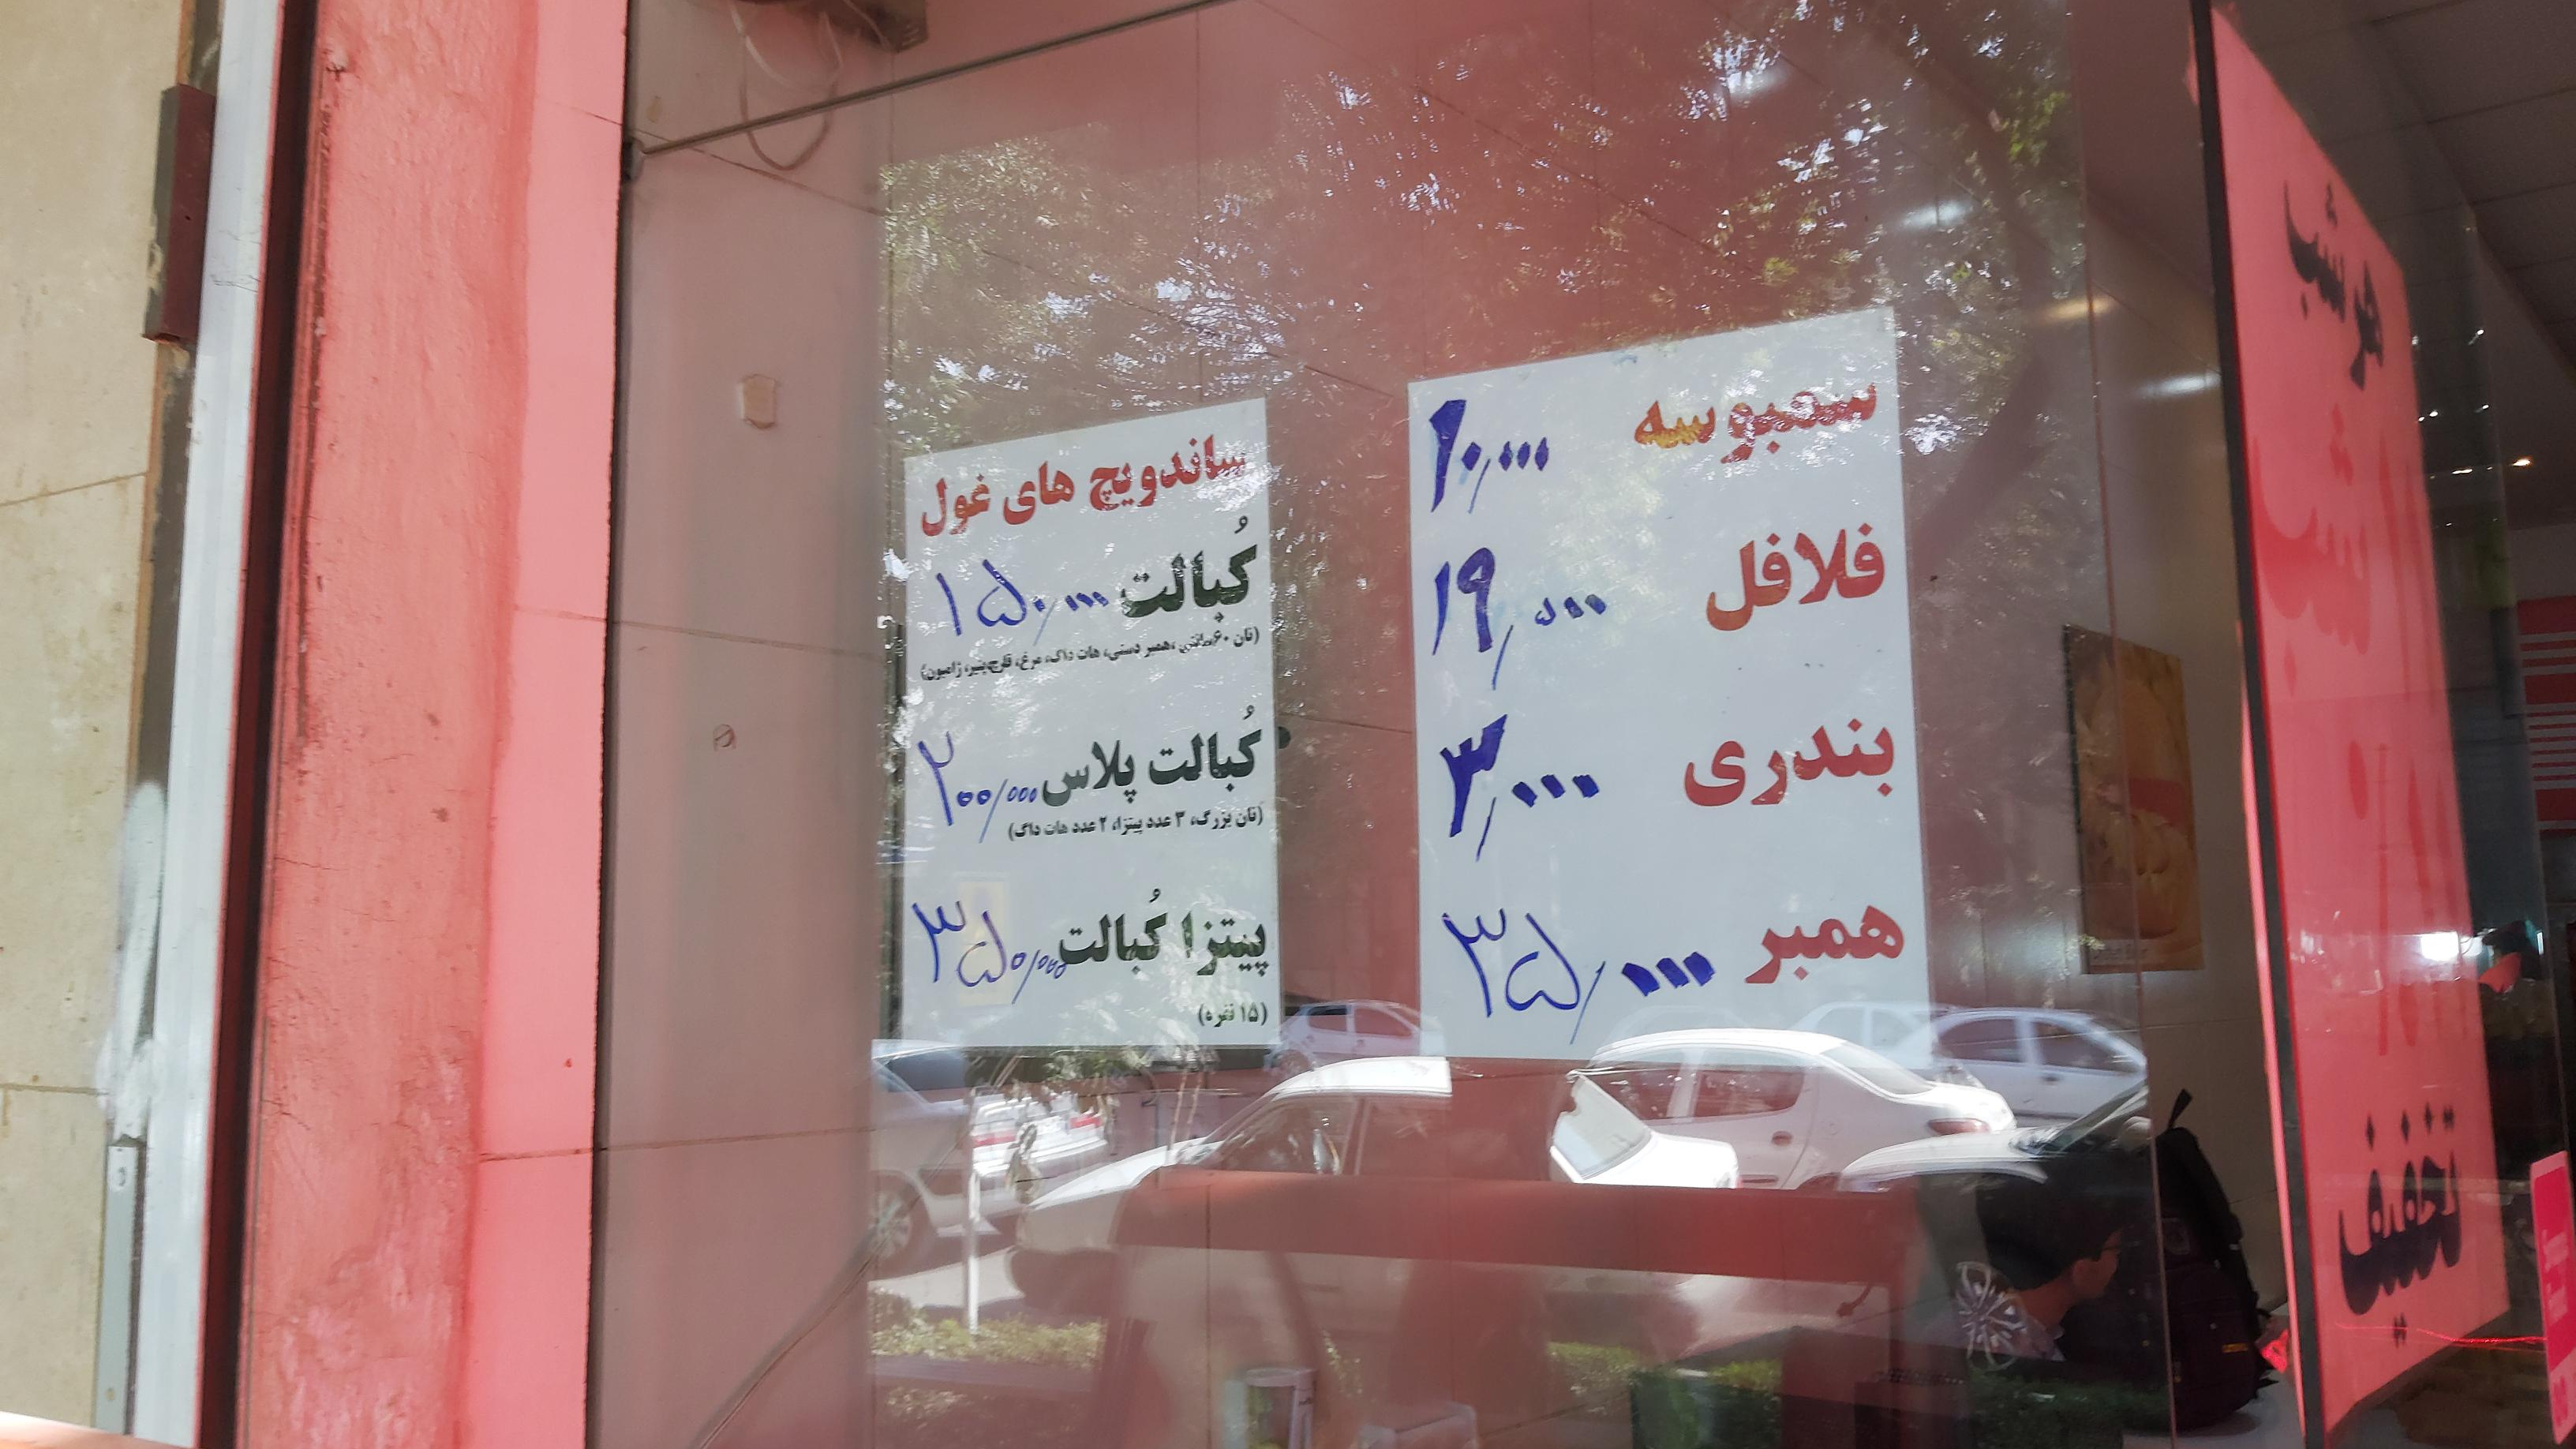 سمبوسه ۱۰/۰۰۰
فلافل ۱۹/۰۰۰
بندری ۳/۰۰۰
همبر ۳۵/۰۰۰
ساندویچ های غول
کُبالت ۱۵۰/۰۰۰
(نان ۶۰سانتی، همبر دستی، هات داگ، مرغ، قارچ،پنیر، ژامبون)
کُبالت پلاس ۲۰۰/۰۰۰
(نان بزرگ، ۳ عدد پیتزا، ۲ عدد هات داگ)
پیتزا کُبالت ۳۵۰/۰۰۰
(۱۵ نفره)
هر شب
تخفیف